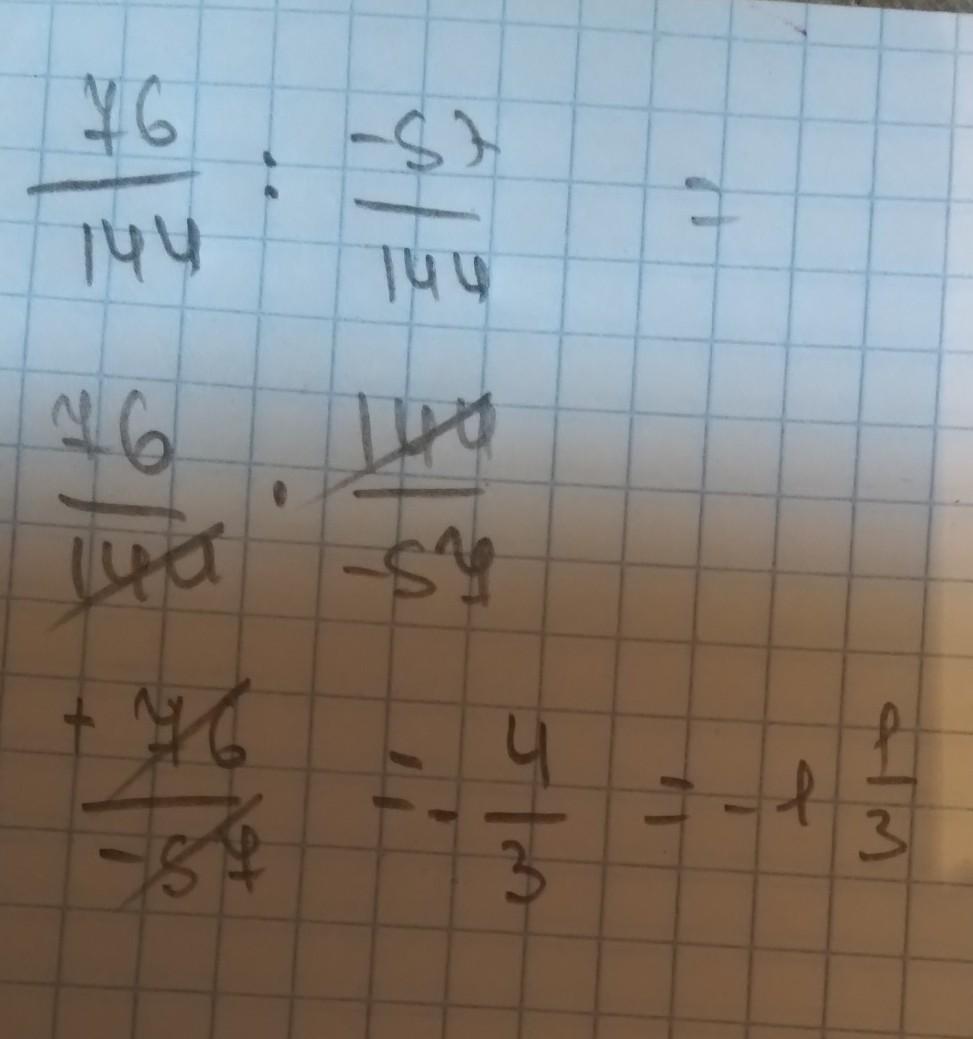 76/144 : -57/144 =
76/144 · 144/-57
+ 76/-57 = - 4/3 = - 1 1/3